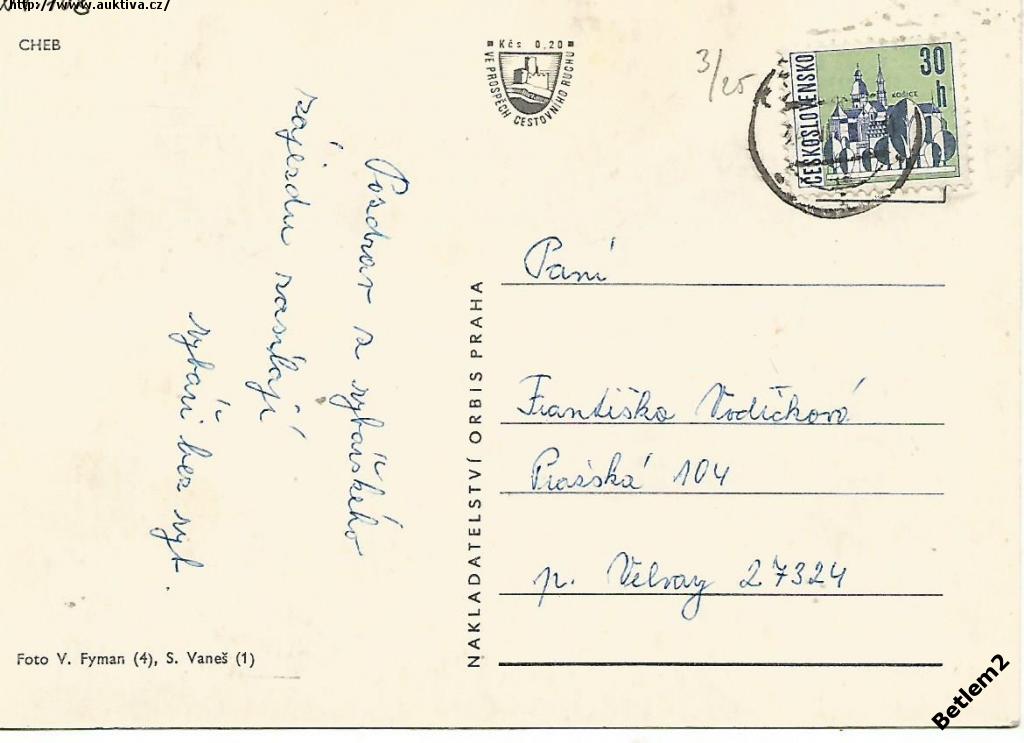 http://www.auktiva.cz/
CHEB
Kčs 0,20
VE PROSPĚCH CESTOVNÍHO RUCHU
3/25
ČESKOSLOVENSKO
30
h
KOŠICE
Pozdrav z rybářského
zájezdu zasílají
rybáři bez ryb.
NAKLADATELSTVÍ ORBIS PRAHA
Paní
Františka Vodičková
Pražská 104
p. Velvary 27324
Foto V. Fyman (4), S. Vaneš (1)
Betlem2